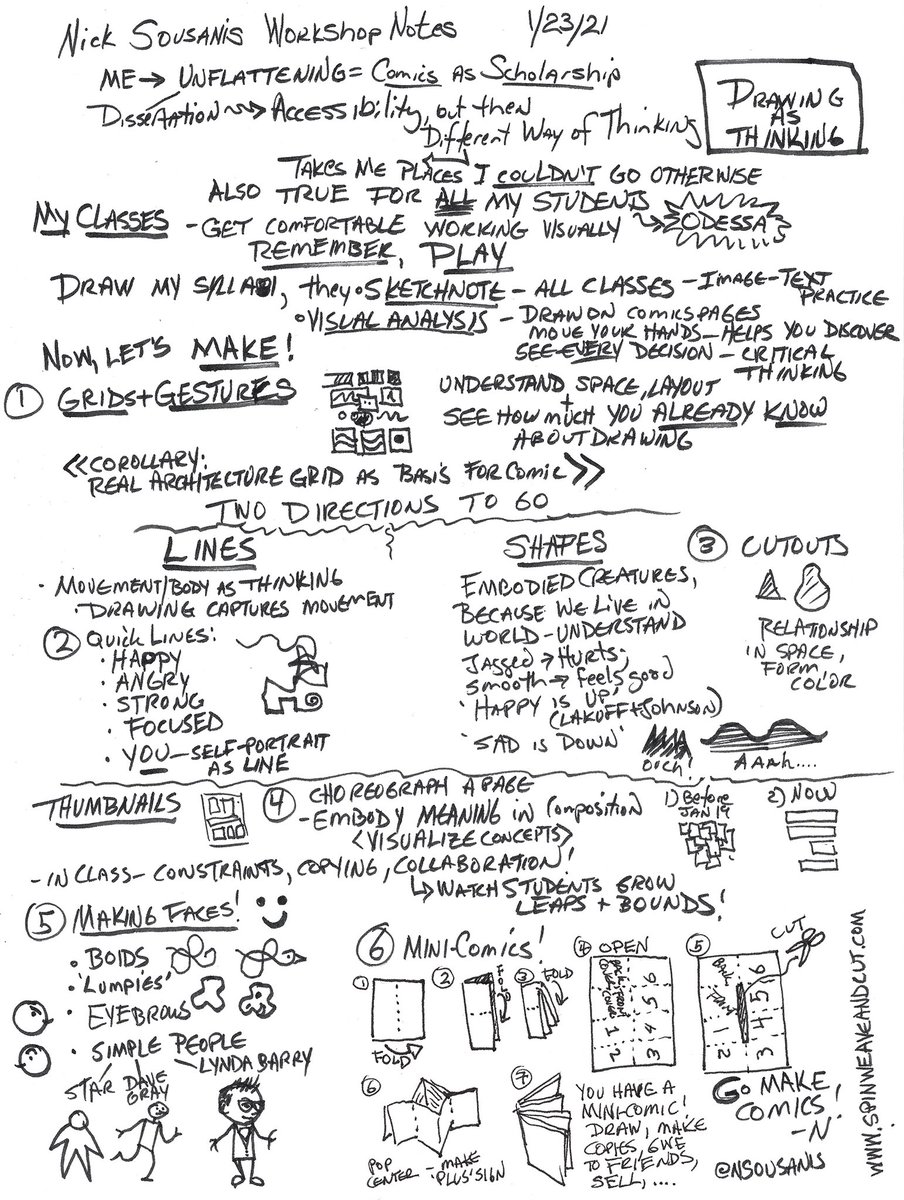 Nick Sousanis Workshop Notes 1/23/21
ME → UNFLATTENING = Comics As Scholarship
Dissertation → Accessibility, but then
Different Way of Thinking
DRAWING
AS
THINKING
TAKES ME PLACES I COULDN'T GO OTHERWISE
ALSO TRUE FOR ALL MY STUDENTS
MY CLASSES - GET COMFORTABLE WORKING VISUALLY → ODESSA
REMEMBER, PLAY
DRAW MY SYLLABI, they • SKETCHNOTE - ALL CLASSES - IMAGE-TEXT
PRACTICE
• VISUAL ANALYSIS - DRAW ON COMICS PAGES
MOVE YOUR HANDS - HELPS YOU DISCOVER
SEE EVERY DECISION - CRITICAL
THINKING
NOW, LET'S MAKE!
① GRIDS + GESTURES
UNDERSTAND SPACE, LAYOUT
+
SEE HOW MUCH YOU ALREADY KNOW
ABOUT DRAWING
<<COROLLARY:
REAL ARCHITECTURE GRID AS BASIS FOR COMIC>>
TWO DIRECTIONS TO GO
LINES
• MOVEMENT/BODY AS THINKING
DRAWING CAPTURES MOVEMENT
② QUICK LINES:
• HAPPY
• ANGRY
• STRONG
• FOCUSED
• YOU - SELF-PORTRAIT
AS LINE
SHAPES
EMBODIED CREATURES,
BECAUSE WE LIVE IN
WORLD - UNDERSTAND
Jagged → Hurts,
smooth → feels good
'HAPPY IS UP'
(LAKOFF + JOHNSON)
'SAD IS DOWN'
OUCH!
AAAh....
③ CUTOUTS
RELATIONSHIP
IN SPACE,
FORM,
COLOR
THUMBNAILS
④ CHOREOGRAPH A PAGE
- EMBODY MEANING IN COMPOSITION
<VISUALIZE CONCEPTS>
1) Before
JAN 19
2) NOW
- IN CLASS - CONSTRAINTS, COPYING, COLLABORATION!
↳ WATCH STUDENTS GROW
LEAPS + BOUNDS!
⑤ MAKING FACES!
• BOIDS
• 'Lumpies'
• EYEBROWS
• SIMPLE PEOPLE
STAR
DAVE
GRAY
LYNDA BARRY
⑥ MINI-COMICS!
①
FOLD
②
FOLD
③
FOLD
④ OPEN
BACK COVER
FRONT COVER
1
2
6
5
4
3
⑤
CUT
BACK
FRONT
1
2
6
5
4
3
⑥
POP
CENTER - MAKE
'PLUS' SIGN
⑦
YOU HAVE A
MINI-COMIC!
DRAW, MAKE
COPIES, GIVE
TO FRIENDS,
SELL, ....
GO MAKE
COMICS!
-N
@NSOUSANIS
WWW.SPINWEAVEANDCUT.COM